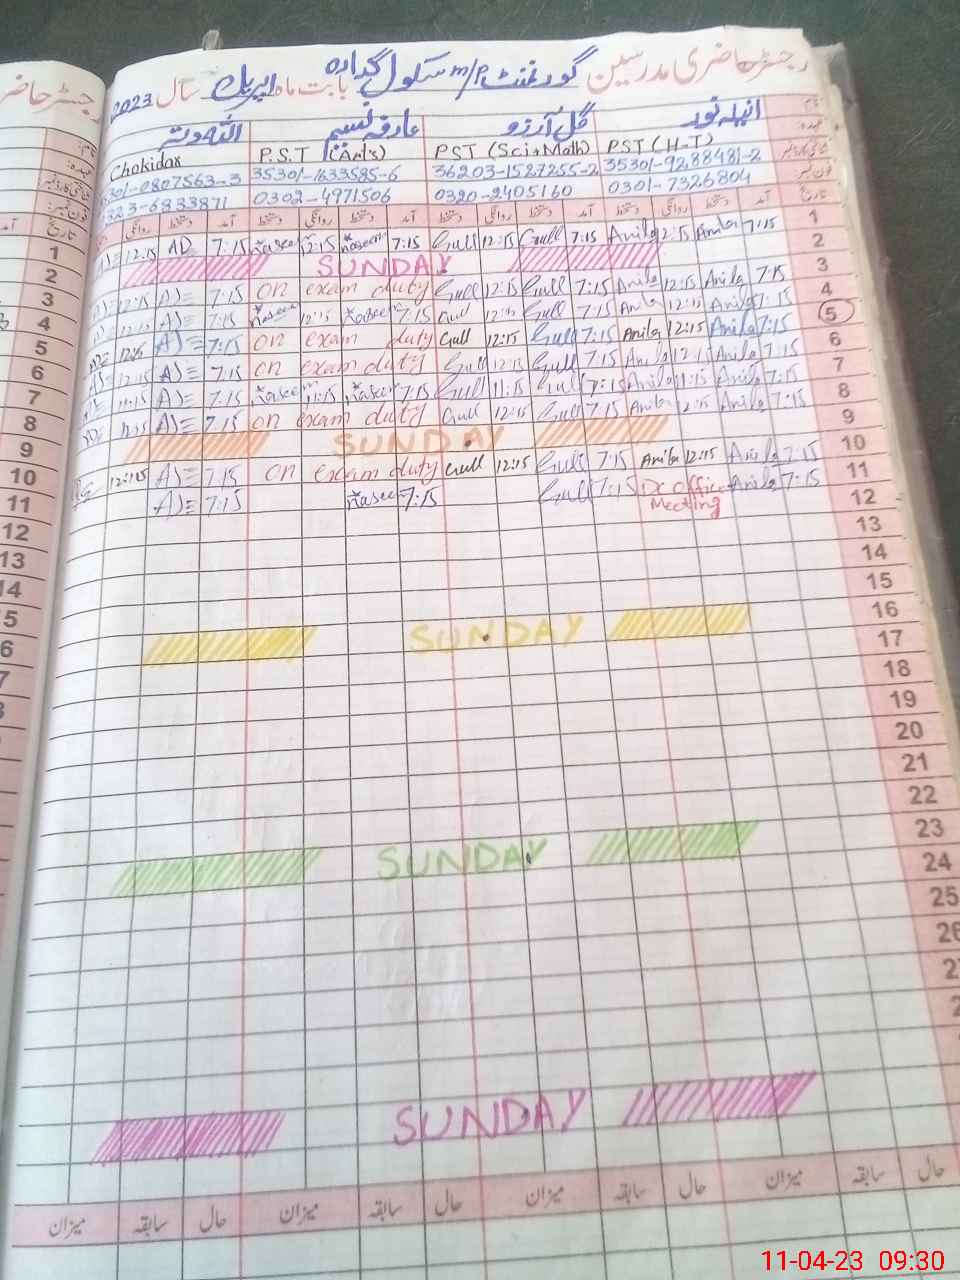 رجسٹر حاضری مدرسین گورنمنٹ m/p سکول گدارہ بابت ماہ اپریل سال 2023
انیلہ نور گل آرزو عارفہ نسیم اللہ دتہ
Chokidar P.S.T (Arts) PST (Sci+Math) PST (H-T)
301-0807563-3 35301-1633585-6 36203-1527255-2 35301-9288481-2
323-6833871 0302-4971506 0320-2405160 0301-7326804
تاریخ آمد دستخط روانگی دستخط آمد دستخط روانگی دستخط آمد دستخط روانگی دستخط آمد دستخط روانگی
1 12:15 AD 7:15 Naseem 12:15 Naseem 7:15 Gull 12:15 Gull 7:15 Anila 12:15 Anila 7:15 1
2 SUNDAY 2
3 12:15 7:15 on exam duty Gull 12:15 Gull 7:15 Anila 12:15 Anila 7:15 3
4 12:15 7:15 Naseem 12:15 Naseem 7:15 Gull 12:15 Gull 7:15 Anila 12:15 Anila 7:15 4
5 12:15 7:15 on exam duty Gull 12:15 Gull 7:15 Anila 12:15 Anila 7:15 5
6 12:15 7:15 on exam duty Gull 12:15 Gull 7:15 Anila 12:15 Anila 7:15 6
7 11:15 7:15 Naseem 11:15 Naseem 7:15 Gull 11:15 Gull 7:15 Anila 11:15 Anila 7:15 7
8 12:15 7:15 on exam duty Gull 12:15 Gull 7:15 Anila 12:15 Anila 7:15 8
9 SUNDAY 9
10 12:15 7:15 on exam duty Gull 12:15 Gull 7:15 Anila 12:15 Anila 7:15 10
11 7:15 Naseem 7:15 Gull 7:15 Office Meeting Anila 7:15 11
12 12
13 13
14 14
15
16 SUNDAY
17
18
19
20
21
22
23 SUNDAY
24
25
26
SUNDAY
میزان سابقہ حال میزان سابقہ حال میزان سابقہ حال میزان سابقہ حال
11-04-23 09:30